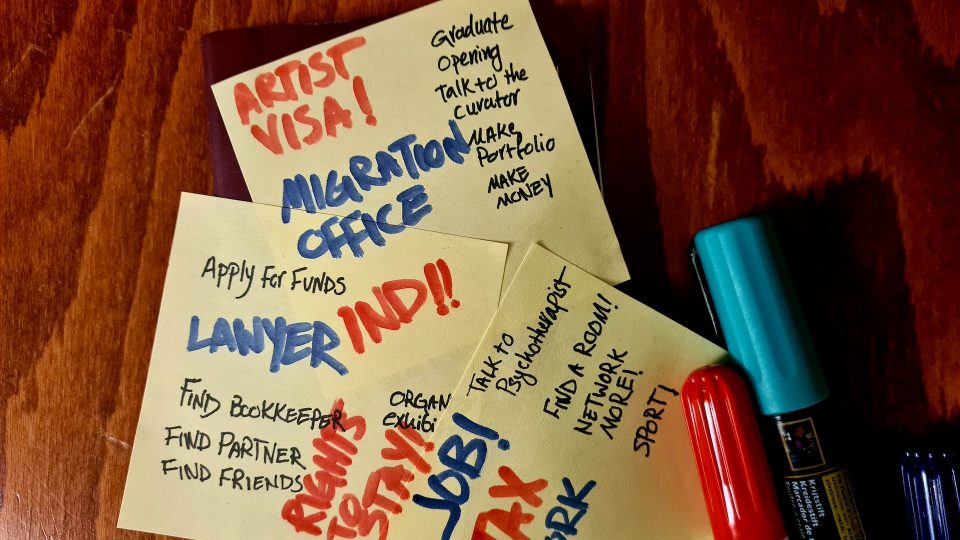 ARTIST
VISA!
MIGRATION
OFFICE
Graduate
Opening
Talk to the
curator
MAKE
Portfolio
MAKE
MONEY
Apply for FUNDS
LAWYER IND!!
FIND BOOKKEEPER
FIND PARTNER
FIND FRIENDS
RIGHTS
TO
STAY!
ORGAN
exhibi
JOB!
TALK to
Psychotherapist
FIND A ROOM!
NETWORK
MORE!
SPORT!
Krijtstift
Kreidestift
Marcador de